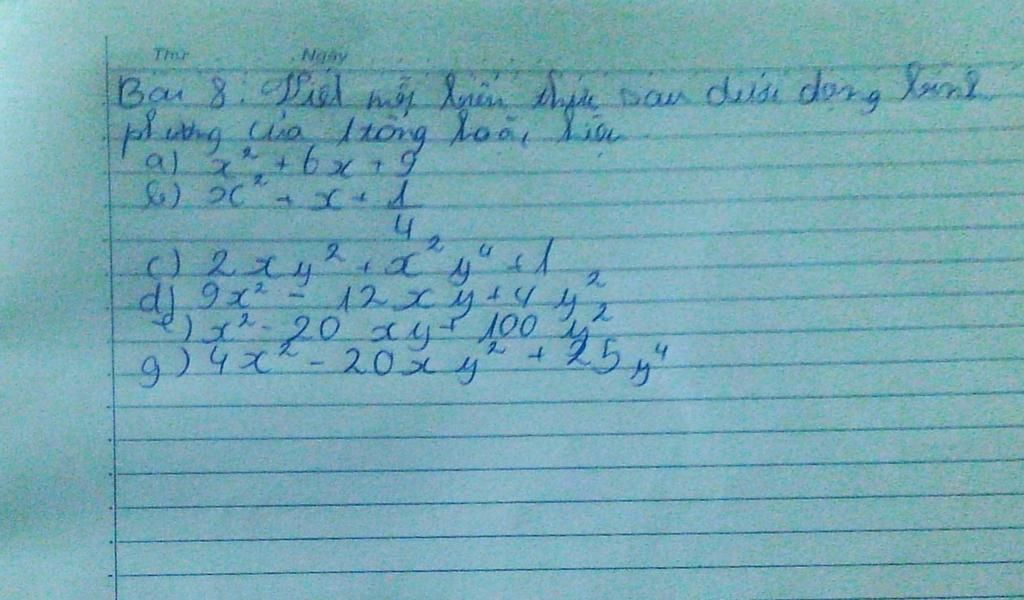 Thứ Ngày
Bài 8: Viết mỗi biểu thức sau dưới dạng bình
phương của tổng hoặc hiệu
a) x² + 6x + 9
b) x² + x + 1/4
c) 2xy² + x²y⁴ + 1
d) 9x² - 12xy + 4y²
e) x² - 20xy + 100y²
g) 4x² - 20xy² + 25y⁴